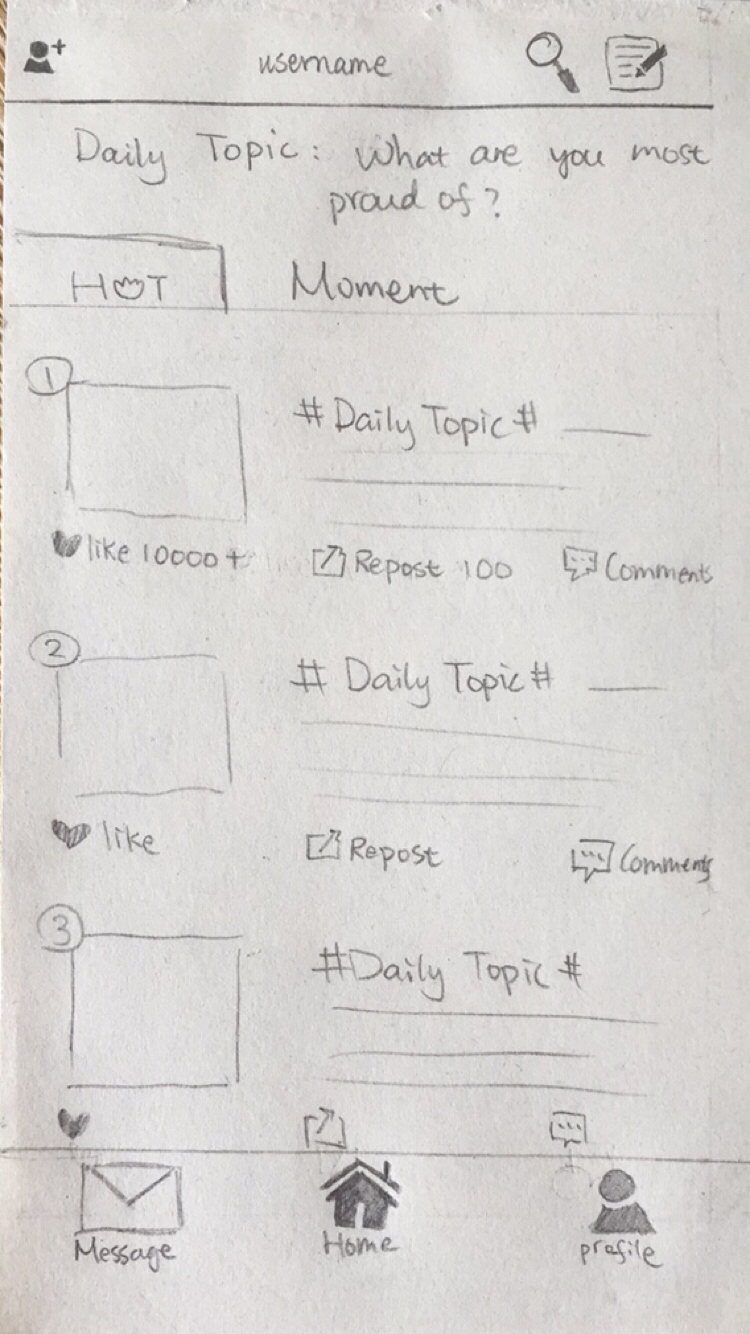 username
Daily Topic: What are you most
proud of?
HOT Moment
1
#Daily Topic#
like 10000+ Repost 100 Comments
2
# Daily Topic#
like Repost Comments
3
#Daily Topic#
Message Home profile